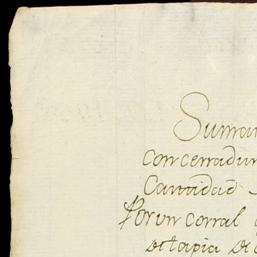 Suma
con cerradur
Cantidad
Por vn corral
de tapia de